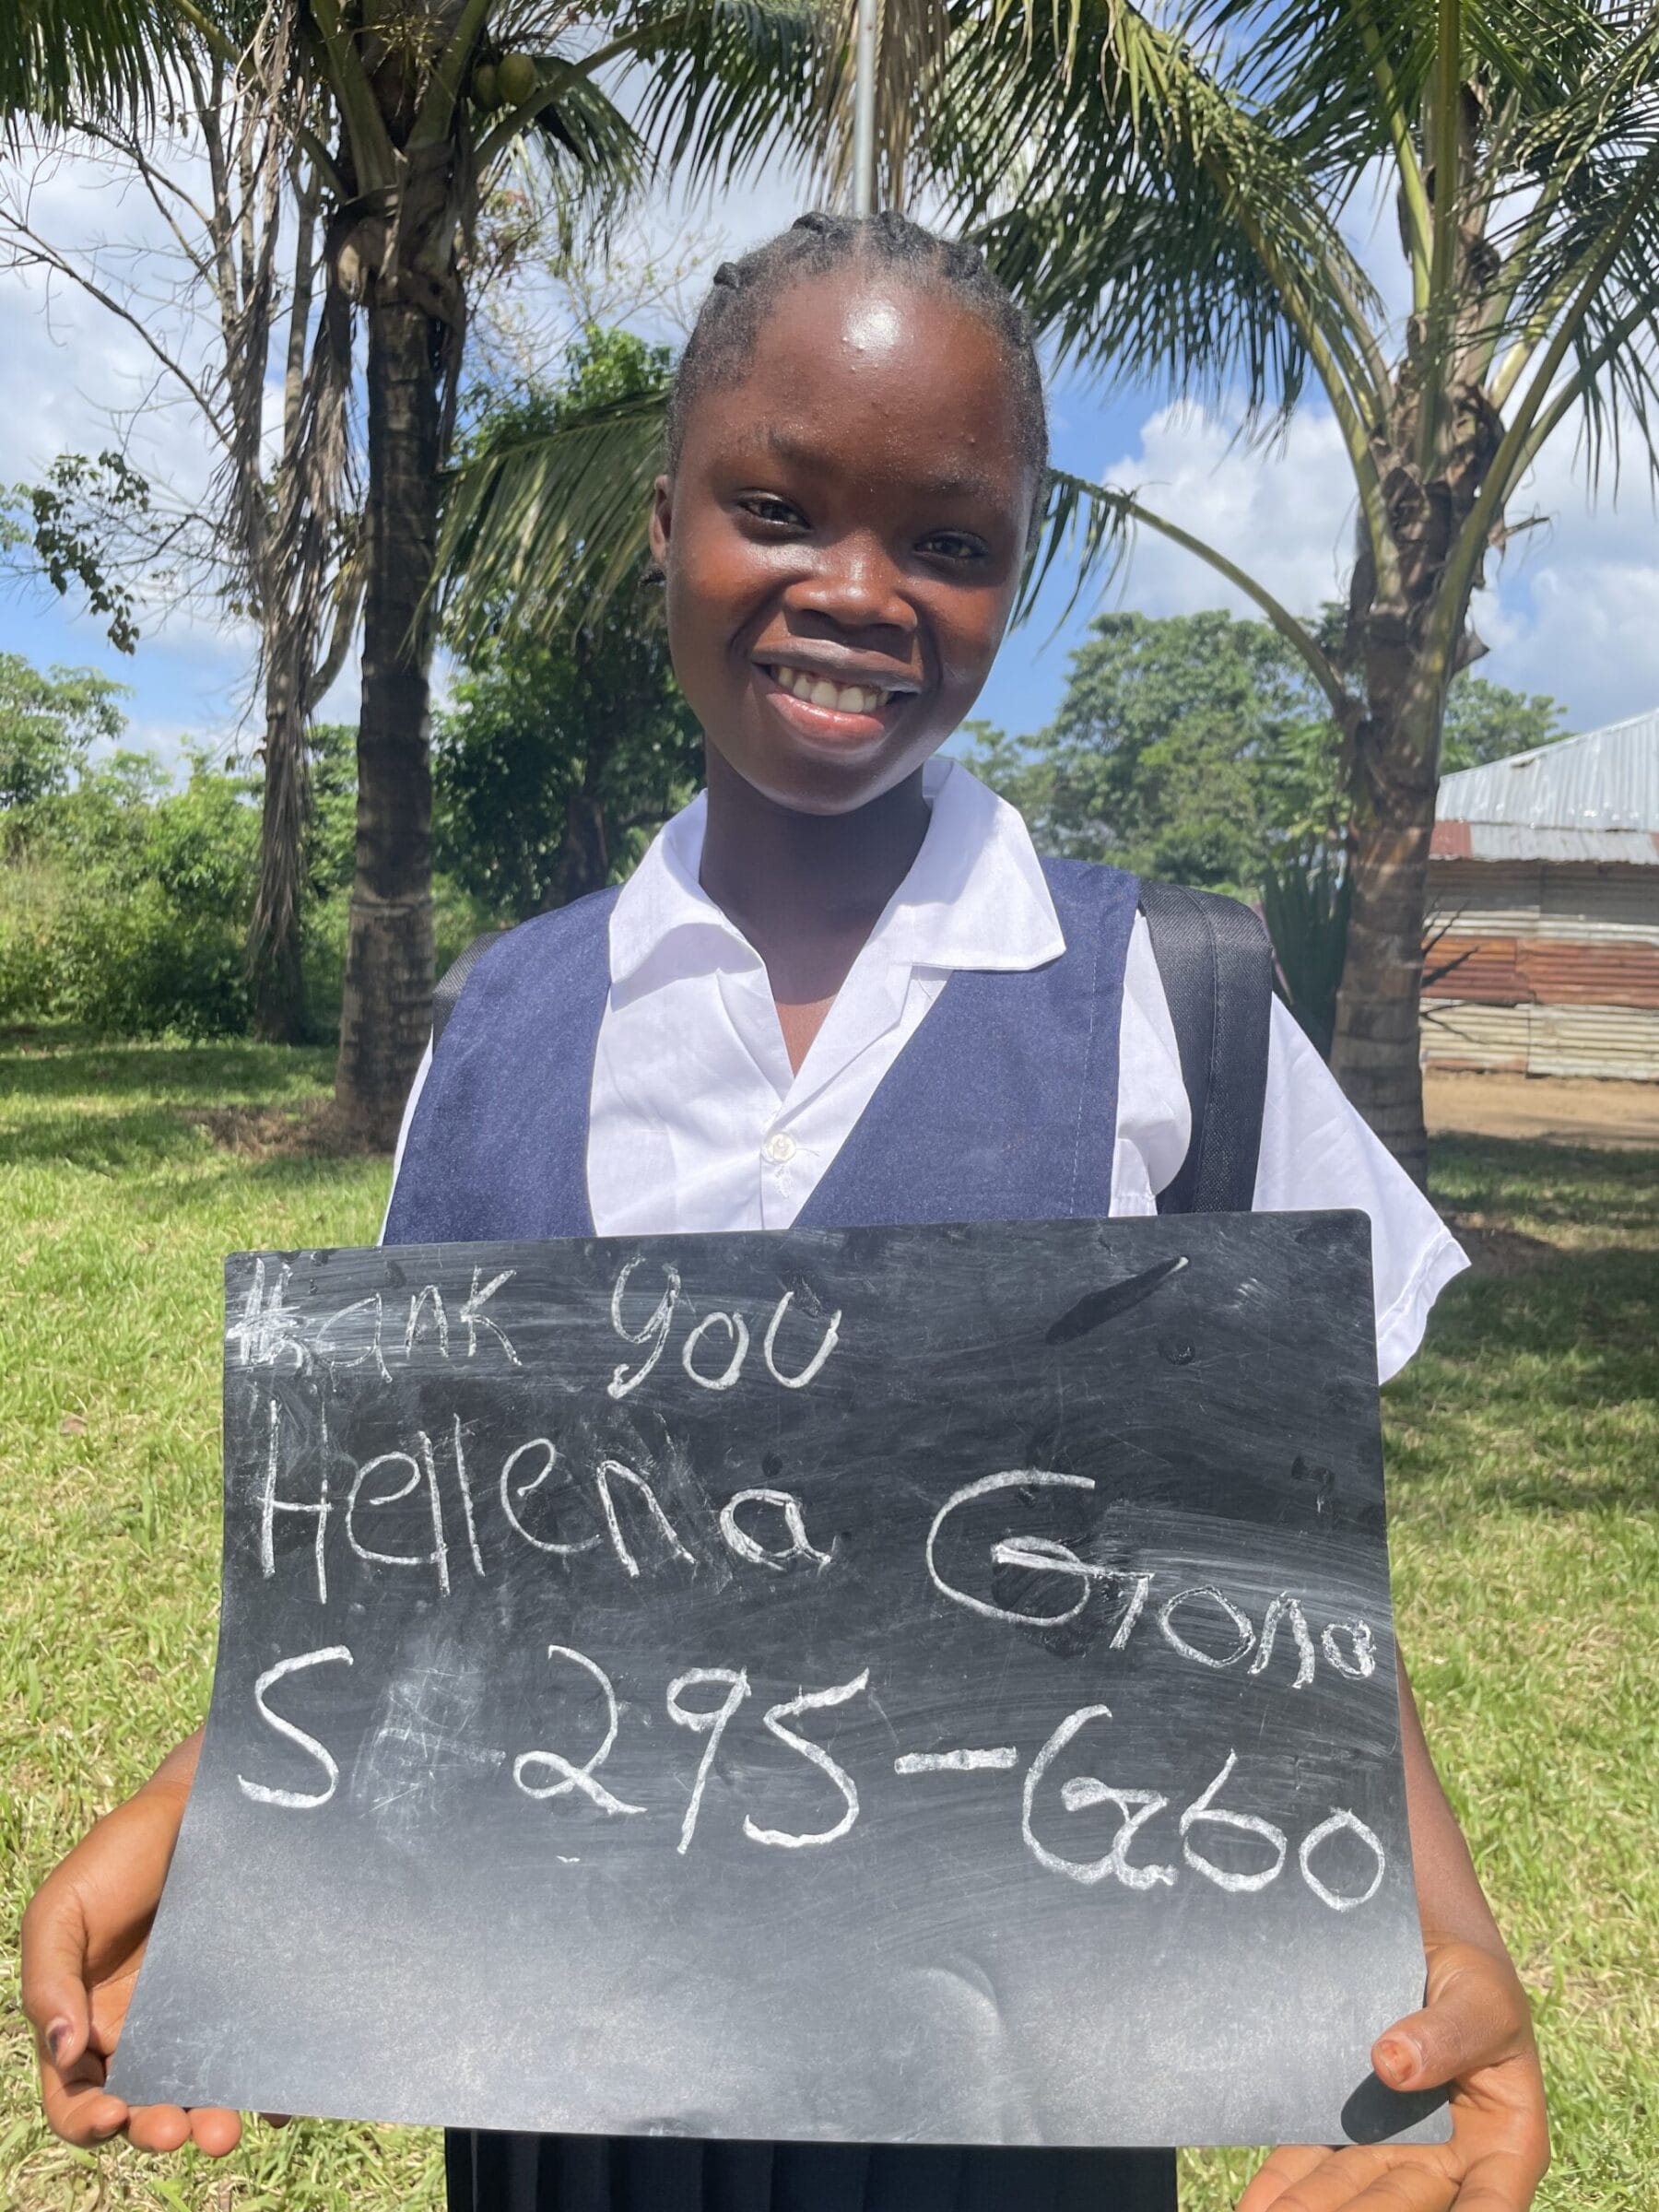 thank you
Hellena Giona
S-295-G60